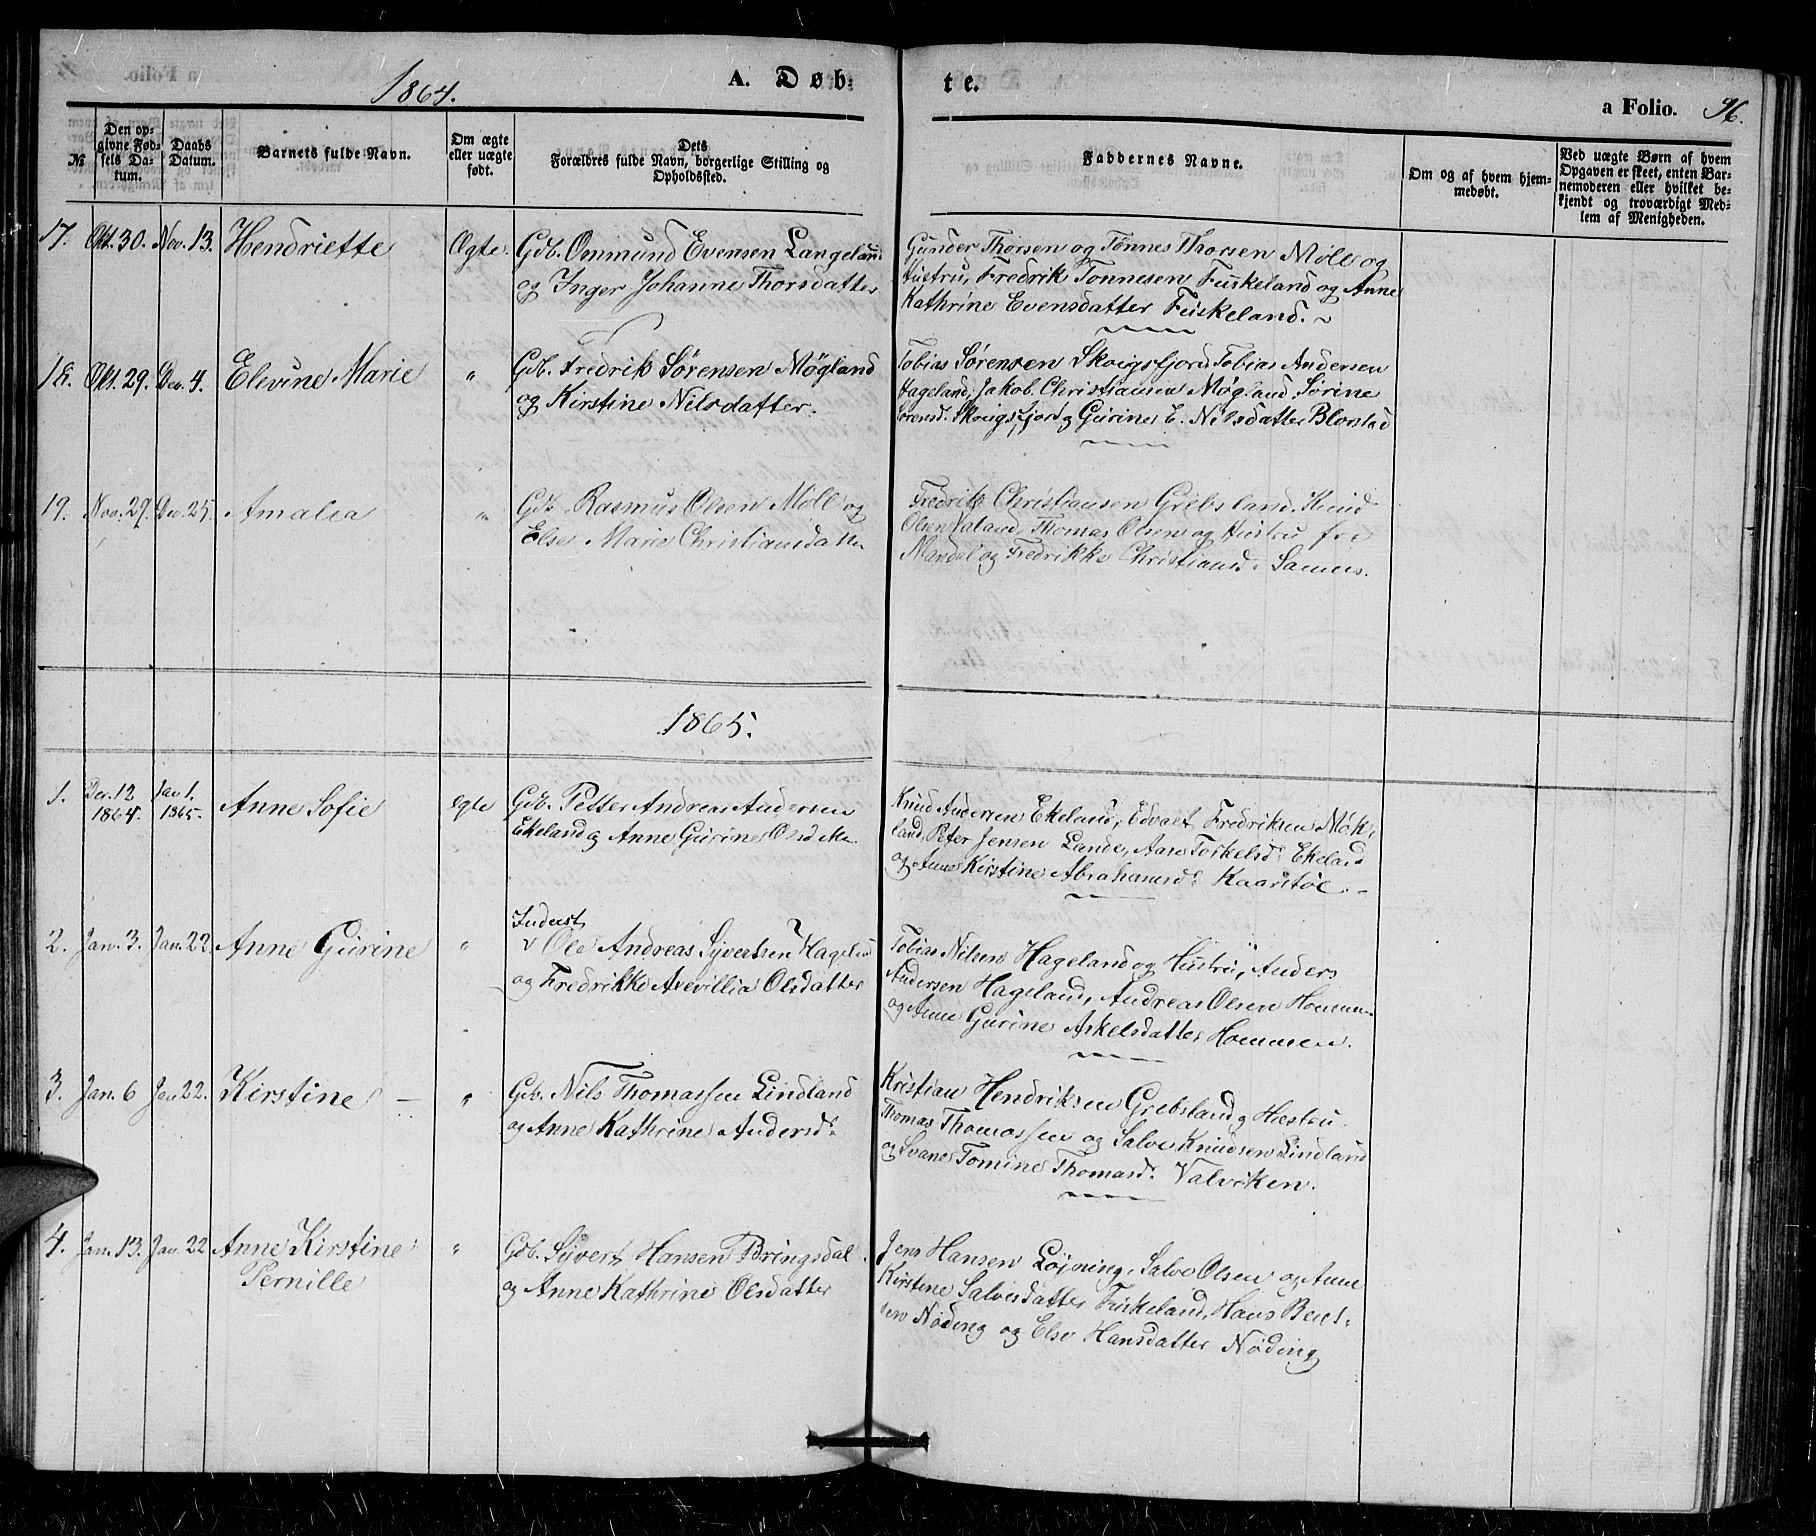 1864.
A. Døbte.
a Folio. 96.
№
Den opgivne Fødsels Datum.
Daabs Datum.
Barnets fulde Navn.
Om ægte eller uægte født.
Dets Forældres fulde Navn, borgerlige Stilling og Opholdssted.
Faddernes Navne.
Om og af hvem hjemmedøbt.
Ved uægte Børn af hvem Opgaven er skeet, enten Barnemoderen eller hvilket bekjendt og troværdigt Medlem af Menigheden.
17. Okt. 30. Nov. 13. Hendriette Ægte
Gdb. Ommund Evensen Langeland
og Inger Johanne Thorsdatter
Gunder Thorsen og Tønnes Thorsen Møll og
Hustru, Fredrik Tønnesen Fuskeland og Anne
Kathrine Evensdatter Fuskeland.
18. Okt. 29. Dec. 4. Elevine Marie "
Gdb. Fredrik Sørensen Møgland
og Kirstine Nilsdatter.
Tobias Sørensen Skoigsfjord, Tobias Andersen
Hageland, Jakob Christiansen Møgland, Sørine
Sørensd. Skoigsfjord og Gurine E. Nilsdatter
19. Nov. 29. Dec. 25. Amalia "
Gdb. Rasmus Olsen Møll og
Else Marie Christiansdatter
Fredrik Christiansen Grebsland, Knud
Olsen Valand, Thomas Olsen og Hustru fra
Mandal og Fredrikke Christiansd. Sannes.
1865.
1. Dec. 12 1864. Jan 1. 1865. Anne Sofie Ægte
Gdb. Petter Andreas Andersen
Ekeland og Anne Gurine Olsdatter
Knud Andersen Ekeland, Edvalt Fredriksen Møk-
land, Peter Jensen Lande, Aase Torkelsd. Ekeland
og Anne Kirstine Abrahamsd. Kaarstøl.
2. Jan. 3. Jan. 22. Anne Gurine "
Inderst
v Ole Andreas Syvertsen Hageland
og Fredrikke Olsdatter
Tobias Nilsen Hageland og Hustru, Anders
Andersen Hageland, Andreas Olsen Hommen
og Anne Gurine Askelsdatter Hommen.
3. Jan. 6 Jan 22. Kirstine "
Gdb. Nils Thomassen Lindland
og Anne Kathrine Andersd.
Kristian Hendriksen Grebsland og Hustru
Thomas Thomassen og Salve Knudsen Lindland
og Svane Tomine Thomasd. Valviken.
4. Jan. 13. Jan. 22 Anne Kirstine "
Pernille
Gdb. Syvert Hansen Bringsdal
og Anne Kathrine Olsdatter
Jens Hansen Løjning, Salve Olsen og Anne
Kirstine Salvesdatter Fuskeland, Hans
Nøding og Else Hansdatter Nøding